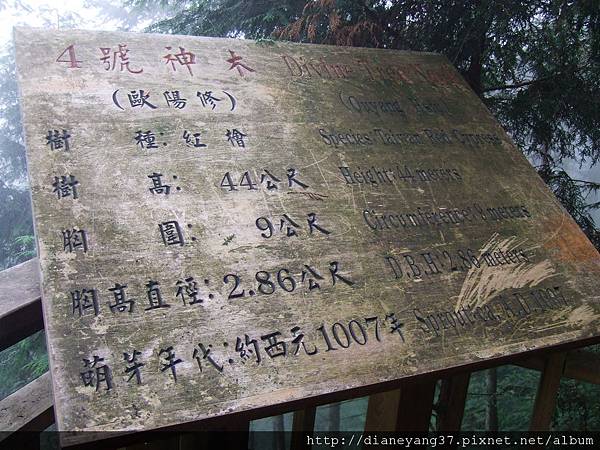 4號神木 Divine Tree No.4
(歐陽修) (Ouyang Hsiu)
樹種:紅檜 Species: Taiwan Red Cypress
樹高:44公尺 Height: 44 meters
胸圍:9公尺 Circumference: 9 meters
胸高直徑:2.86公尺 D.B.H 2.86 meters
萌芽年代:約西元1007年
http://www.dianeyang37.pixnet.net/album